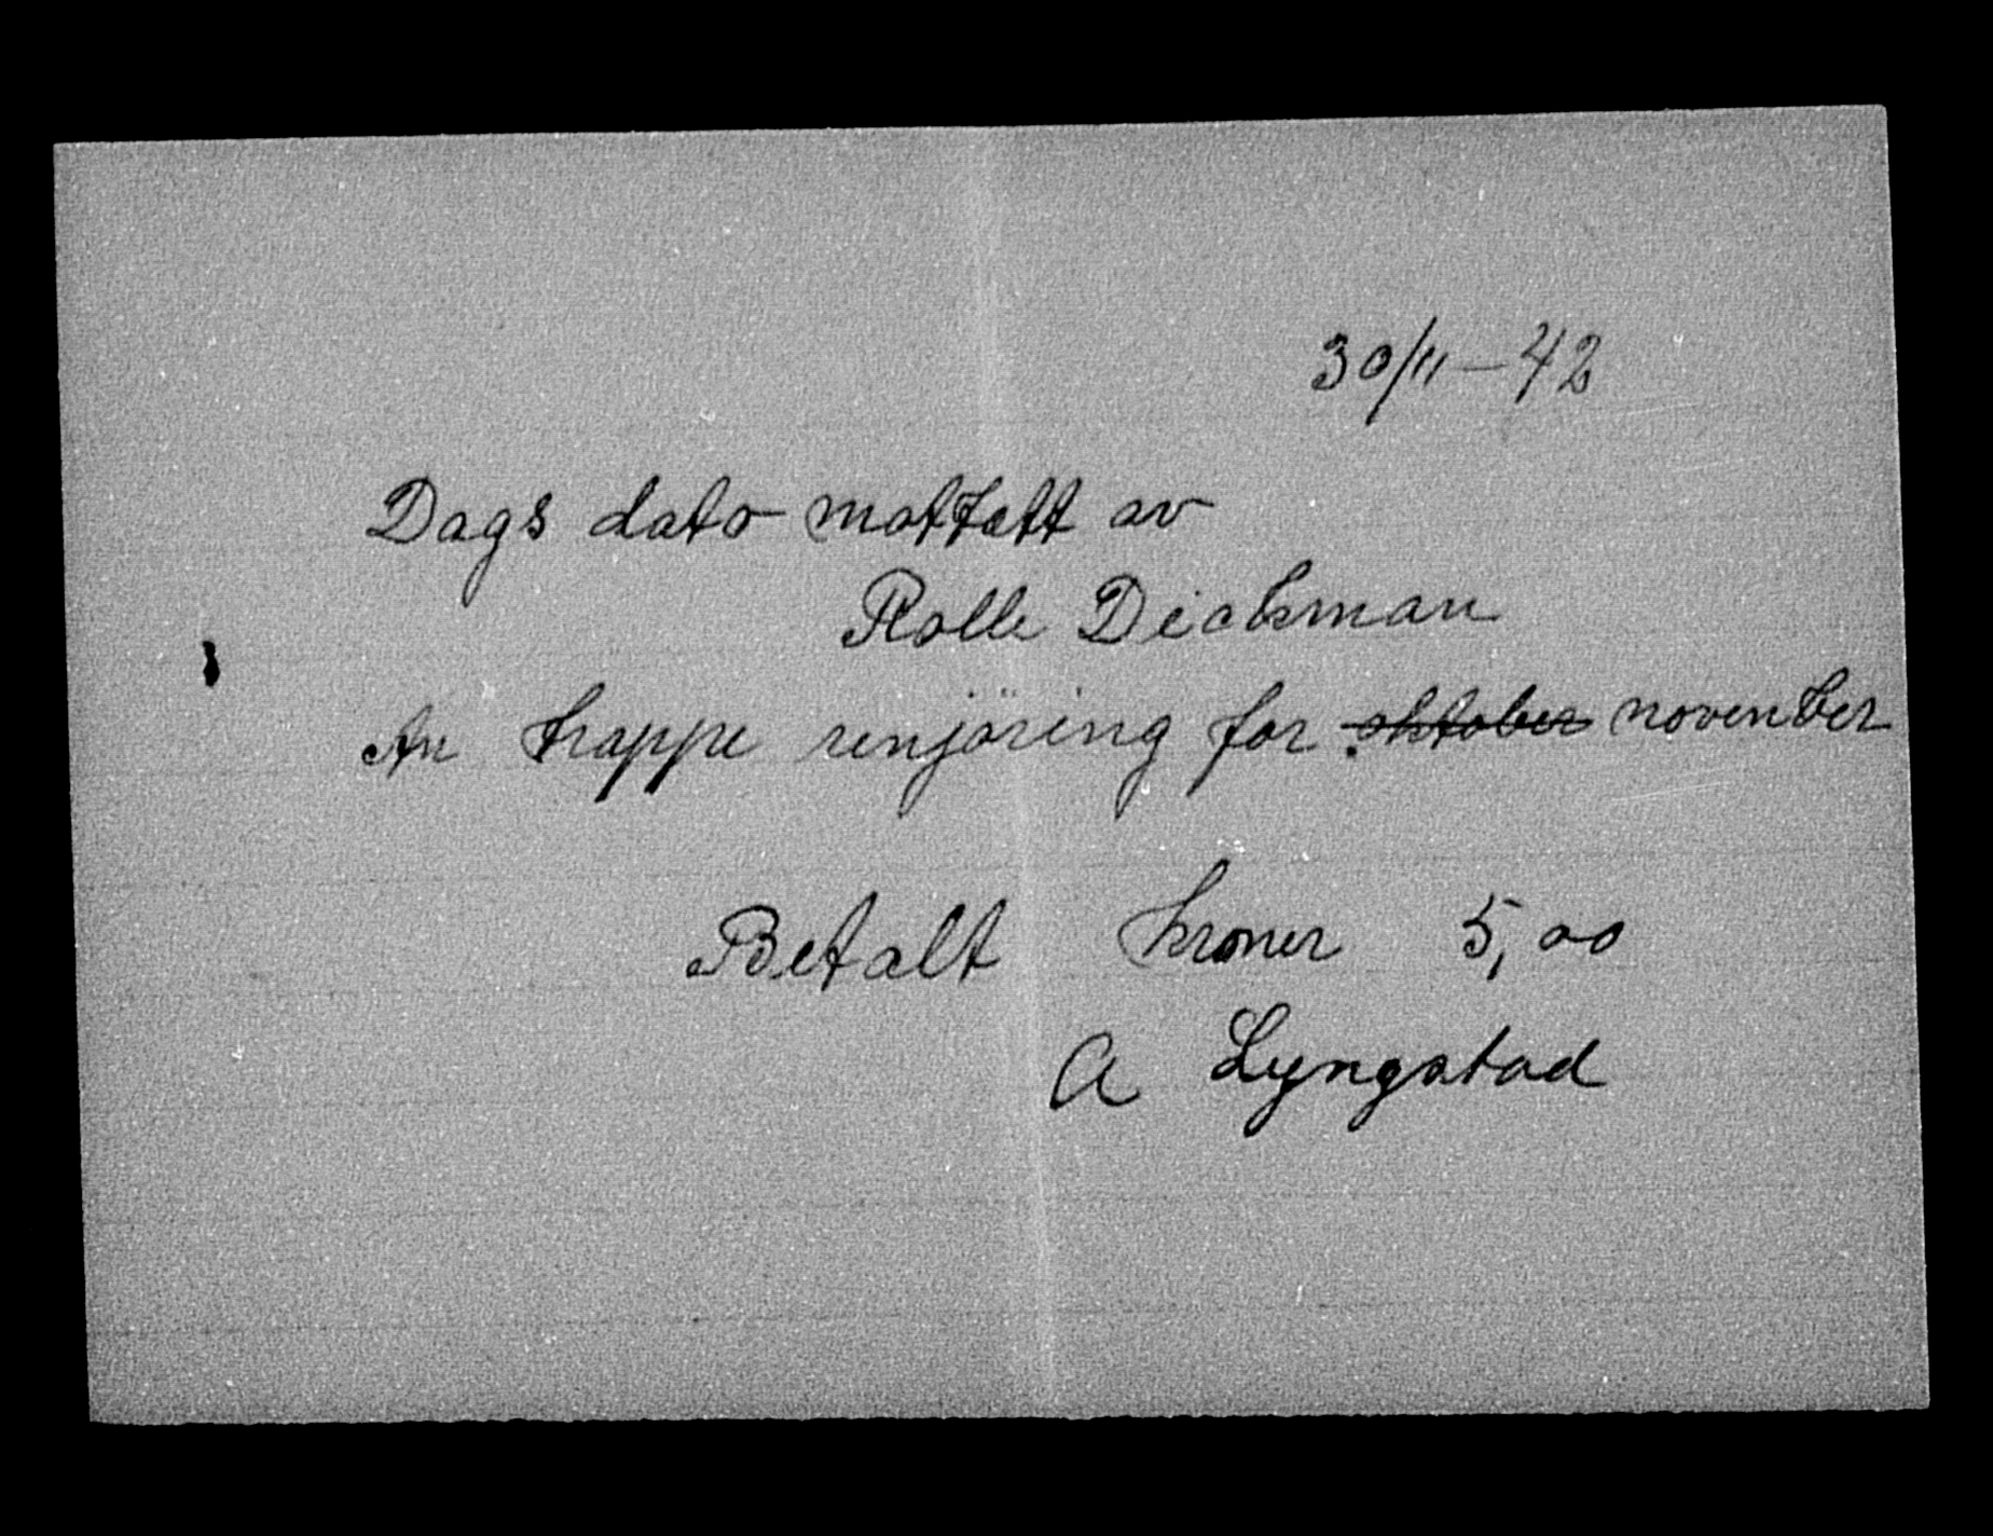 30/11-42
Dags dato mottatt av
Rolle Dickman
for trappe renjöring for oktober november
Betalt kroner 5,00
A Lyngstad